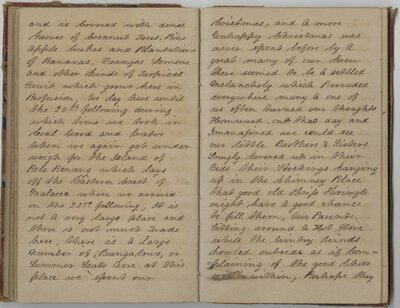 and is Covered with dense
Groves of Cocoanut Trees, Pine
Apple bushes and Plantations
of Bananas, Oranges Lemons
and other kinds of Tropical
Fruit which grows here in
Profusion, We lay here untill
the 20th following during
which time we took in
Coal Wood and Water
When we again got under
weigh for the Island of
Pelo Penang which lays
off the Eastern Coast of
Malacca where we arrived
on the 23rd following, It is
not a very large place and
there is not much Trade
here, there is a large
number of Bungalows, or
Summer Seats here at this
place we spent our
Christmas, and a more
Unhappy Christmas was
never spent before by a
great many of our Crew
there seemed to be a settled
Melancholy which Pervaded
everywhere many a one of
us often turned our thoughts
Homeward, on that day and
Immagined we could see
our little Brothers & Sisters
Snugly Covered up in their
Beds their Stockings hanging
up in the Chimney Place
that good old Kriss Kringle
might have a good chance
to fill them, Our Parents
Sitting around a Hot Stove
while the Wintry Winds
howled outside as if Com=
plaining of the good Cheer
within, Perhaps they